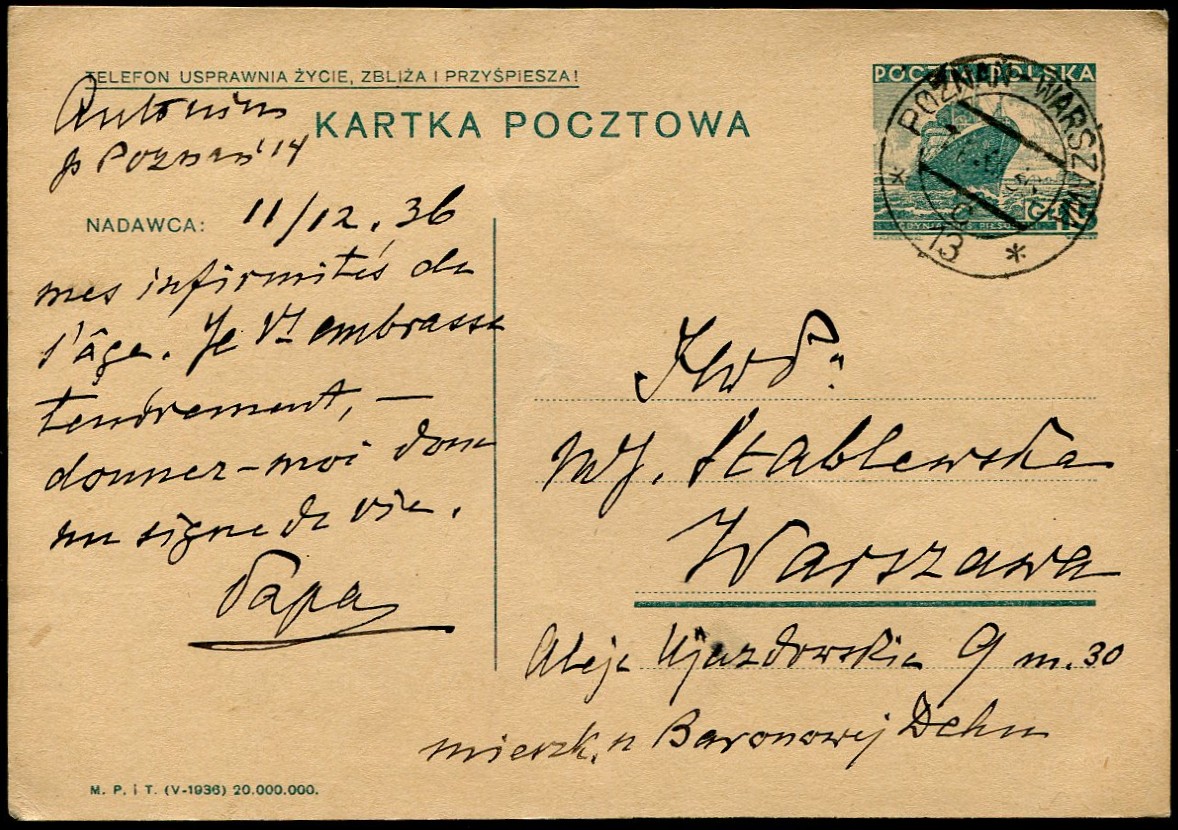 TELEFON USPRAWNIA ŻYCIE, ZBLIŻA I PRZYŚPIESZA!
KARTKA POCZTOWA
Antonin
p Poznań 14
NADAWCA: 11/12. 36
mes infirmités de
l'âge. Je Vs embrasse
tendrement, —
donnez-moi donc
un signe de vie.
Papa
M. P. i T. (V-1936) 20.000.000.
POCZTA POLSKA
POZNAŃ - WARSZAWA
13
GDYNIA
JWP.
MJ. Stablewska
Warszawa
Aleje Ujazdowskie 9 m. 30
mieszk. u Baronowej Dehn